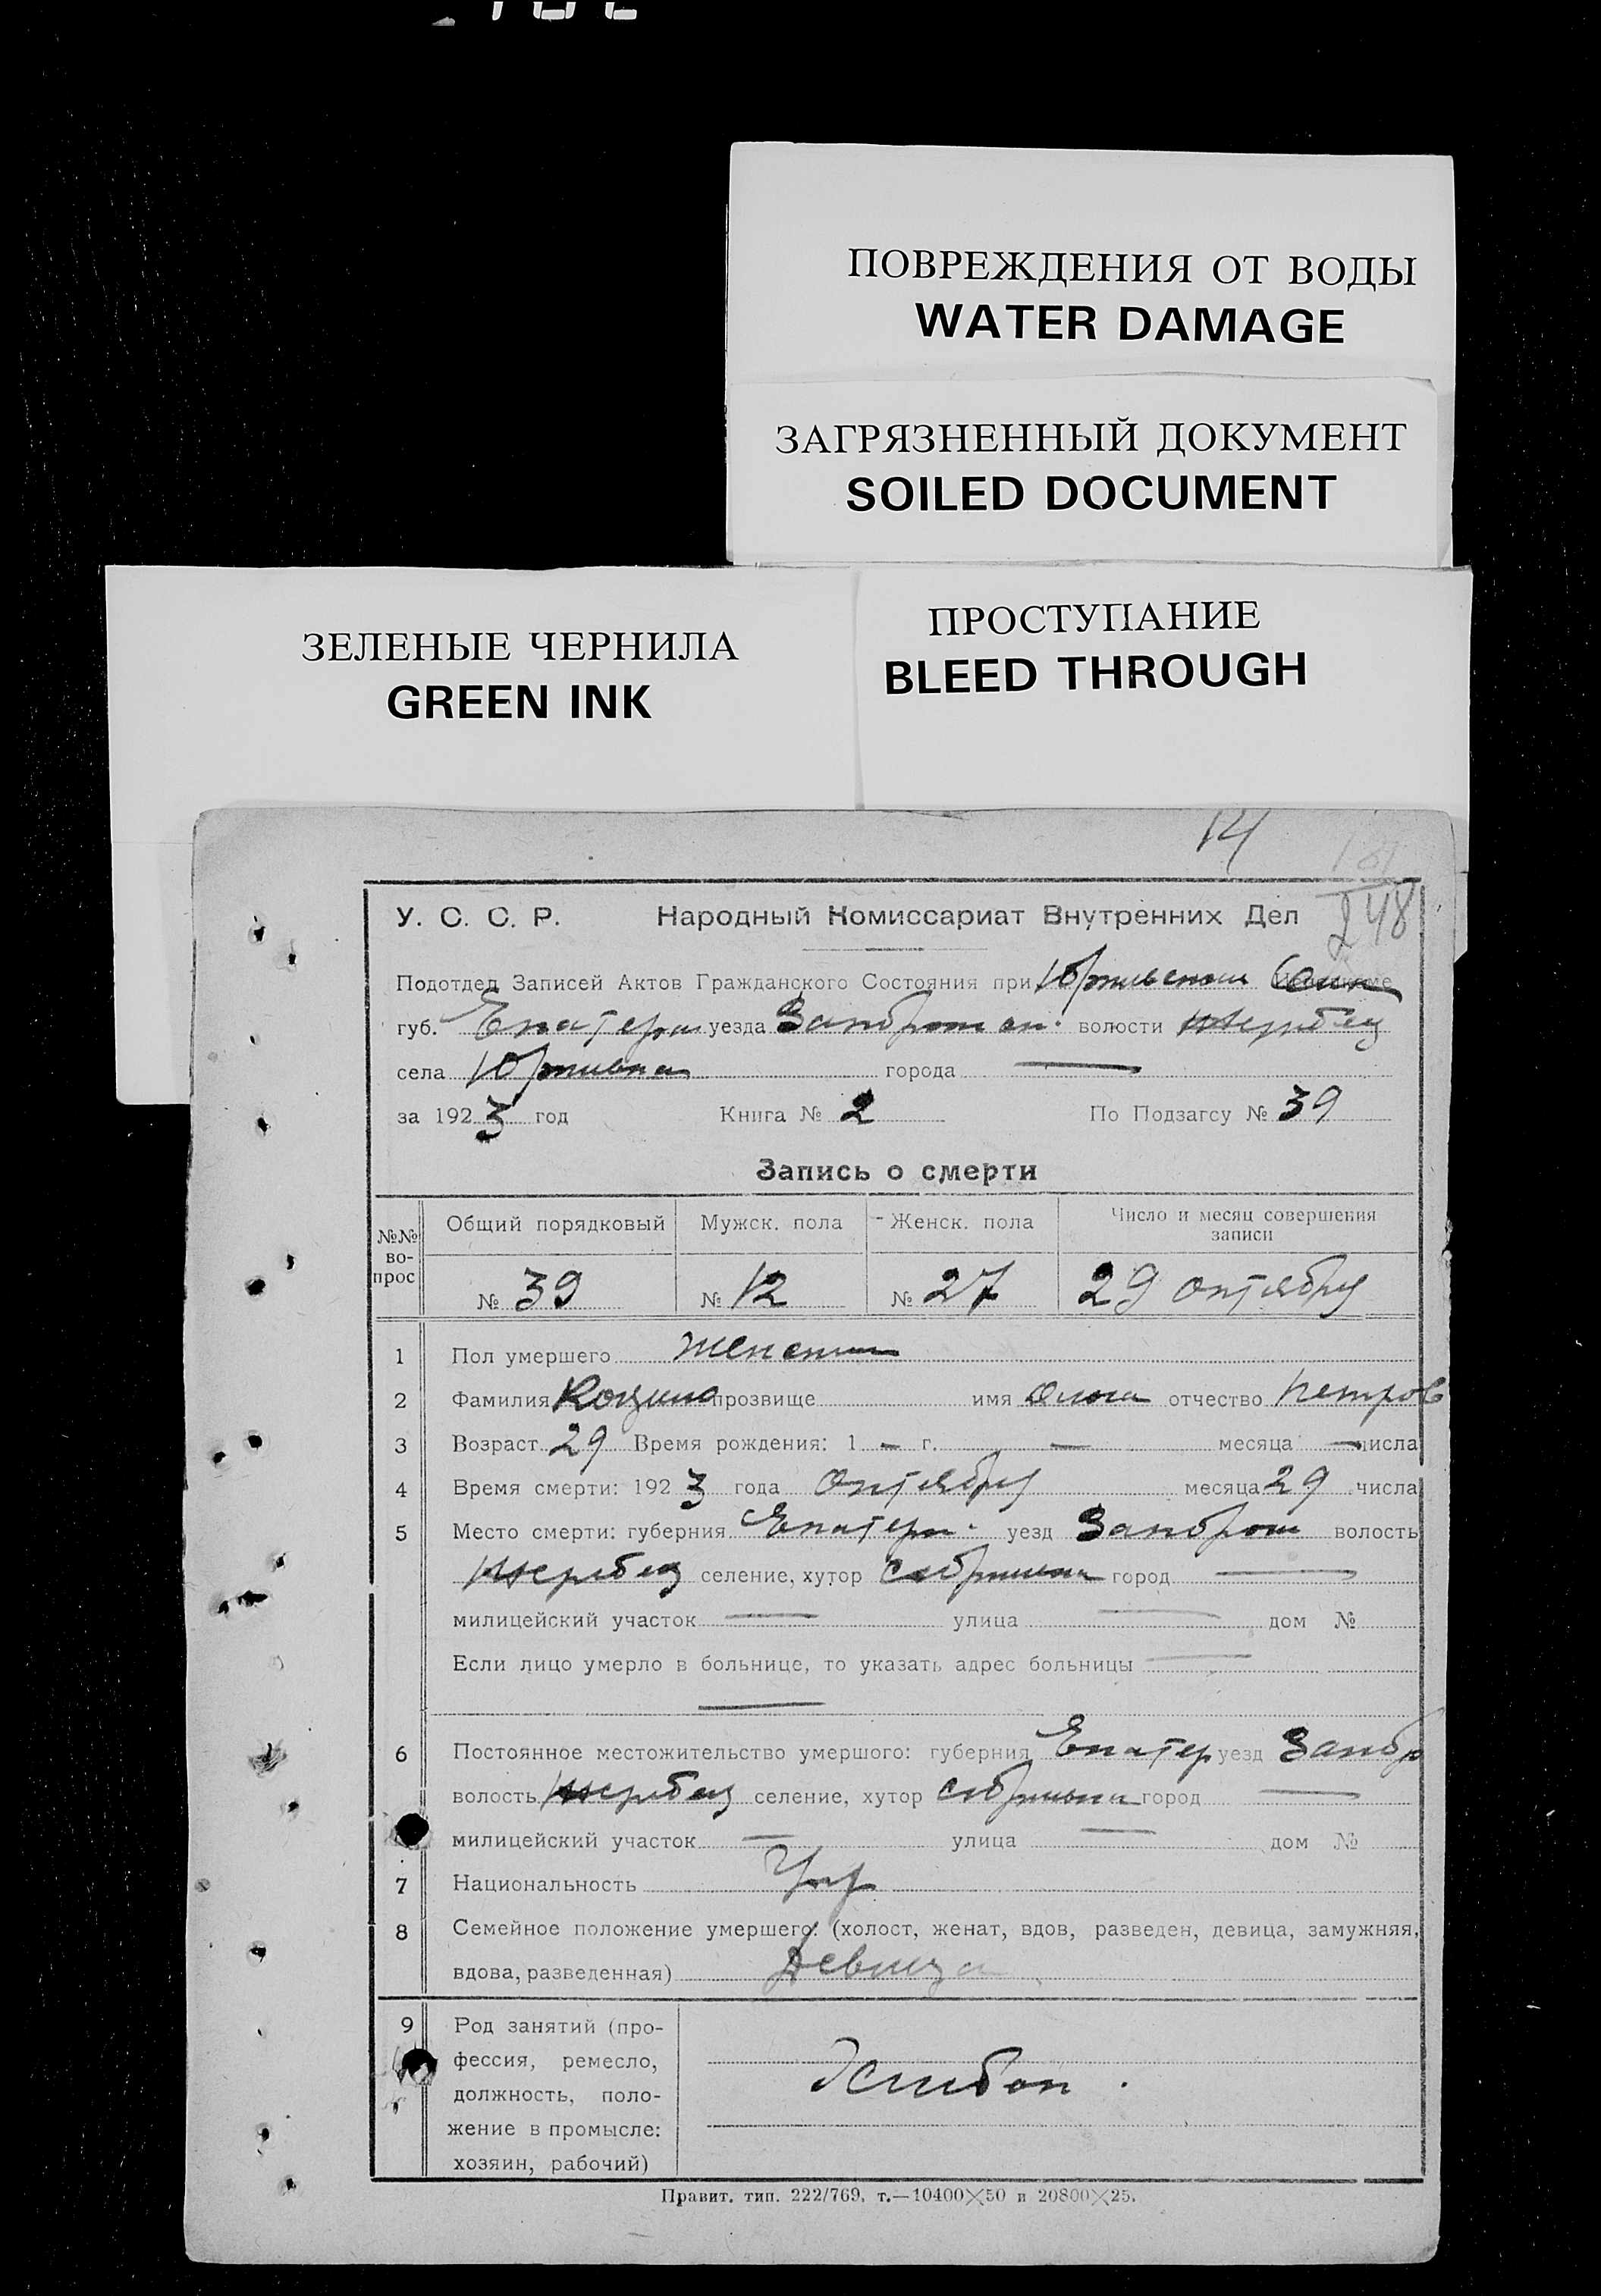 ПОВРЕЖДЕНИЯ ОТ ВОДЫ
WATER DAMAGE
ЗАГРЯЗНЕННЫЙ ДОКУМЕНТ
SOILED DOCUMENT
ЗЕЛЕНЫЕ ЧЕРНИЛА
GREEN INK
ПРОСТУПАНИЕ
BLEED THROUGH
14
248
У. С. С. Р. Народный Комиссариат Внутренних Дел
Подотдел Записей Актов Гражданского Состояния при
губ. Екатерин уезда волости
села города —
за 1923 год Книга № 2 По Подзагсу № 39
Запись о смерти
№№ во- прос Общий порядковый Мужск. пола Женск. пола Число и месяц совершения записи
№ 39 № 12 № 27 29 октября
1 Пол умершего женский
2 Фамилия прозвище имя отчество Петров
3 Возраст 29 Время рождения: 1 — г. — месяца — числа
4 Время смерти: 1923 года октября месяца 29 числа
5 Место смерти: губерния Екатерин. уезд волость
селение, хутор город —
милицейский участок — улица — дом №
Если лицо умерло в больнице, то указать адрес больницы —
—
6 Постоянное местожительство умершого: губерния Екатер уезд
волость селение, хутор город —
милицейский участок — улица — дом №
7 Национальность Укр
8 Семейное положение умершего: (холост, женат, вдов, разведен, девица, замужняя,
вдова, разведенная) Девица
9 Род занятий (про-
фессия, ремесло,
должность, поло-
жение в промысле:
хозяин, рабочий)
Правит. тип. 222/769. т.—10400×50 и 20800×25.